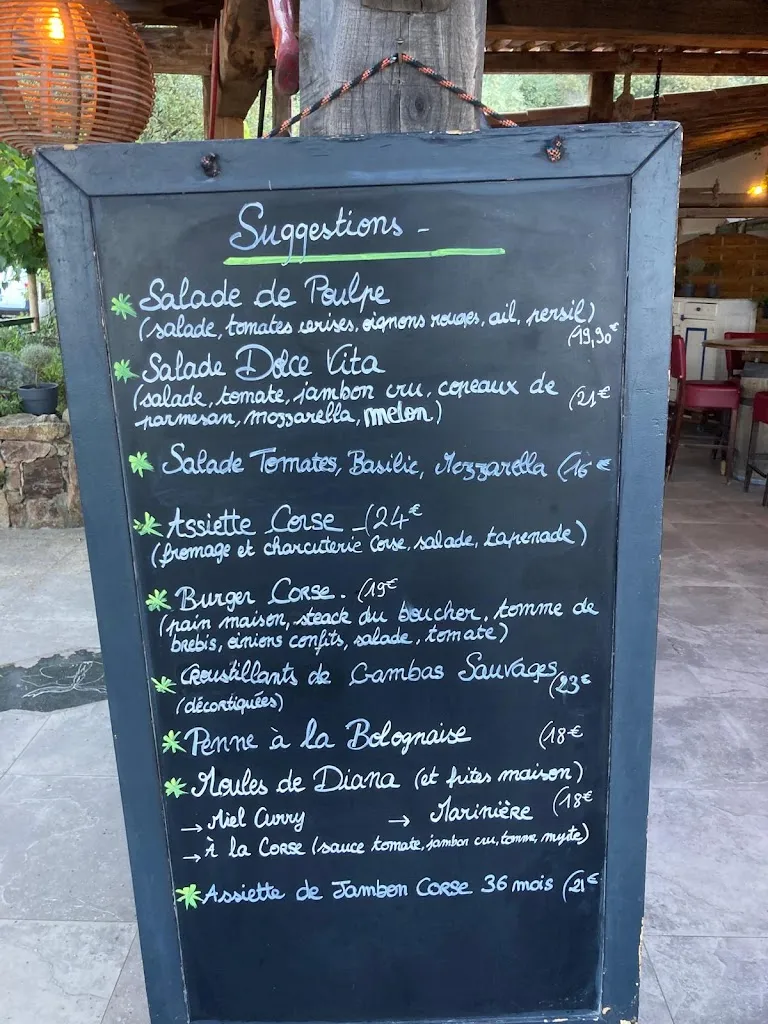 Suggestions -
Salade de Poulpe
(salade, tomates cerises, oignons rouges, ail, persil)
(19,90€
Salade Dolce Vita
(salade, tomate, jambon cru, copeaux de
parmesan, mozzarella, melon)
(21€
Salade Tomates, Basilic, Mozzarella (16€
Assiette Corse - (24€
(fromage et charcuterie Corse, salade, tapenade)
Burger Corse. (19€
(pain maison, steack du boucher, tomme de
brebis, oinions confits, salade, tomate)
Croustillants de Gambas Sauvages
(23€
(décortiquées)
Penne à la Bolognaise (18€
Moules de Diana (et frites maison)
(18€
→ Miel Curry → Marinière
→ À la Corse (sauce tomate, jambon cru, tomme, myrte)
Assiette de Jambon Corse 36 mois (21€